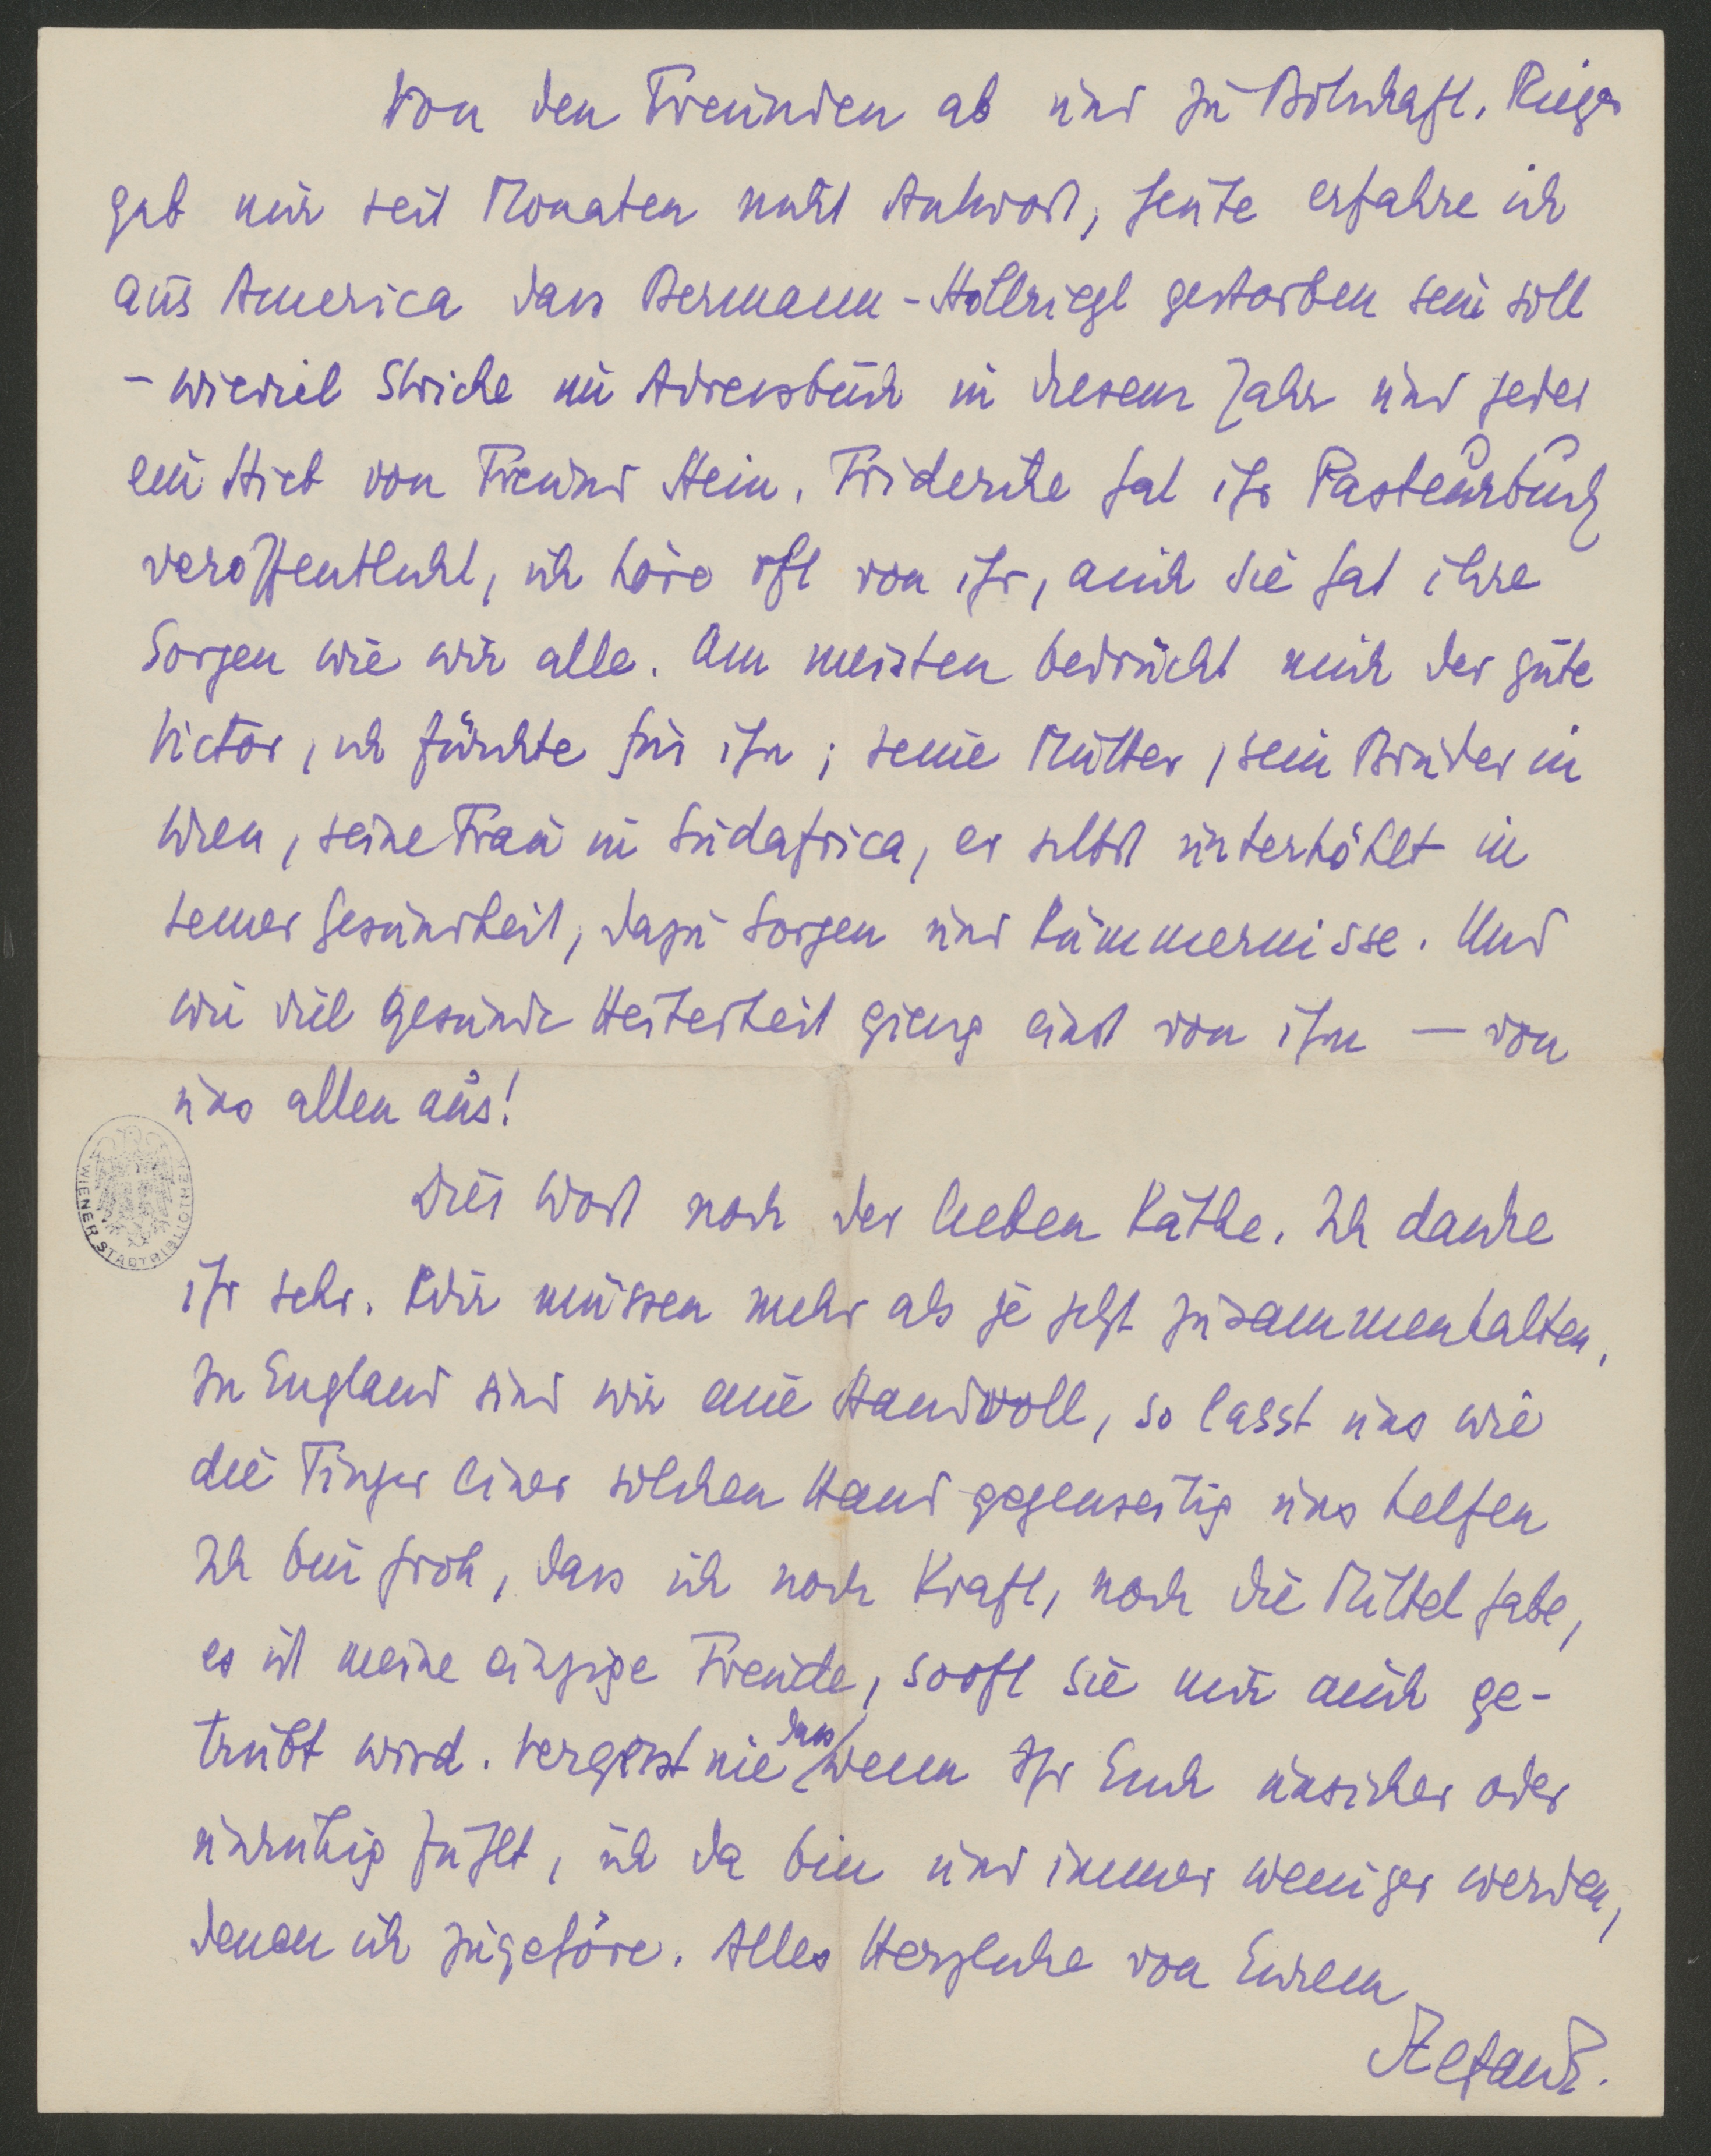 Von den Freunden ab und zu Botschaft. Rieger
gab mir seit Monaten nicht Antwort, heute erfahre ich
aus America dass Bermann-Höllriegl gestorben sein soll
– wieviel Striche im Adressbuch in diesem Jahr und jeder
ein Hieb von Freund Hein. Friderike hat ihr Pasteurbuch
veröffentlicht, ich höre oft von ihr, auch sie hat ihre
Sorgen wie wir alle. Am meisten bedrückt mich der gute
Victor, ich fürchte für ihn; seine Mutter, sein Bruder in
Wien, seine Frau in Südafrica, er selbst unterhöhlt in
seiner Gesundheit, dazu Sorgen und Kümmernisse. Und
wie viel gesunde Heiterkeit gieng einst von ihm – von
uns allen aus!
Dies Wort noch der lieben Käthe. Ich danke
ihr sehr. Wir müssen mehr als je jetzt zusammenhalten,
in England sind wir eine Handvoll, so lasst uns wie
die Finger einer solchen Hand gegenseitig uns helfen
Ich bin froh, dass ich noch Kraft, noch die Mittel habe,
es ist meine einzige Freude, sooft sie mir auch ge-
trübt wird. Vergesst nie dass wenn Ihr Euch unsicher oder
unruhig fühlt, ich da bin und immer weniger werden,
denen ich zugehöre. Alles Herzliche von Eurem
Stefan Z.
WIENER STADTBIBLIOTHEK